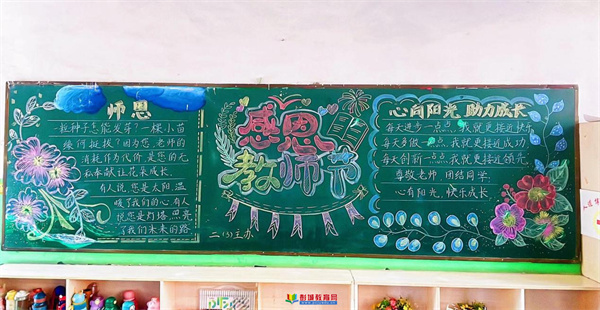 师恩
一粒种子怎能发芽?一棵小苗
缘何挺拔?因为您,老师的
消耗作为代价,是您的无
私奉献让花果成长。
有人说,您是太阳,温
暖了我们的心,有人
说您是灯塔,照亮
了我们未来的路
感恩
教师节
二(3)主办
心向阳光 助力成长
每天进步一点点,我就更接近快乐
每天多做一点点,我就更接近成功
每天创新一点点,我就更接近领先
尊敬老师,团结同学,
心有阳光,快乐成长。
彭城教育网